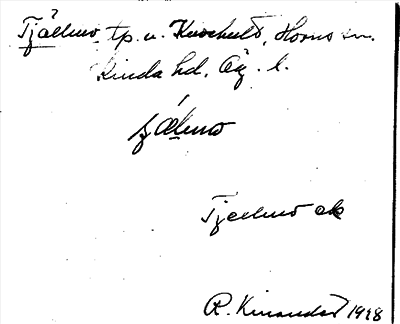 Tjällmo tp. u. Kvarhult, Horns sn.
Kinda hd. Ög. l.
Tjällmo ak
R. Kinander 1928